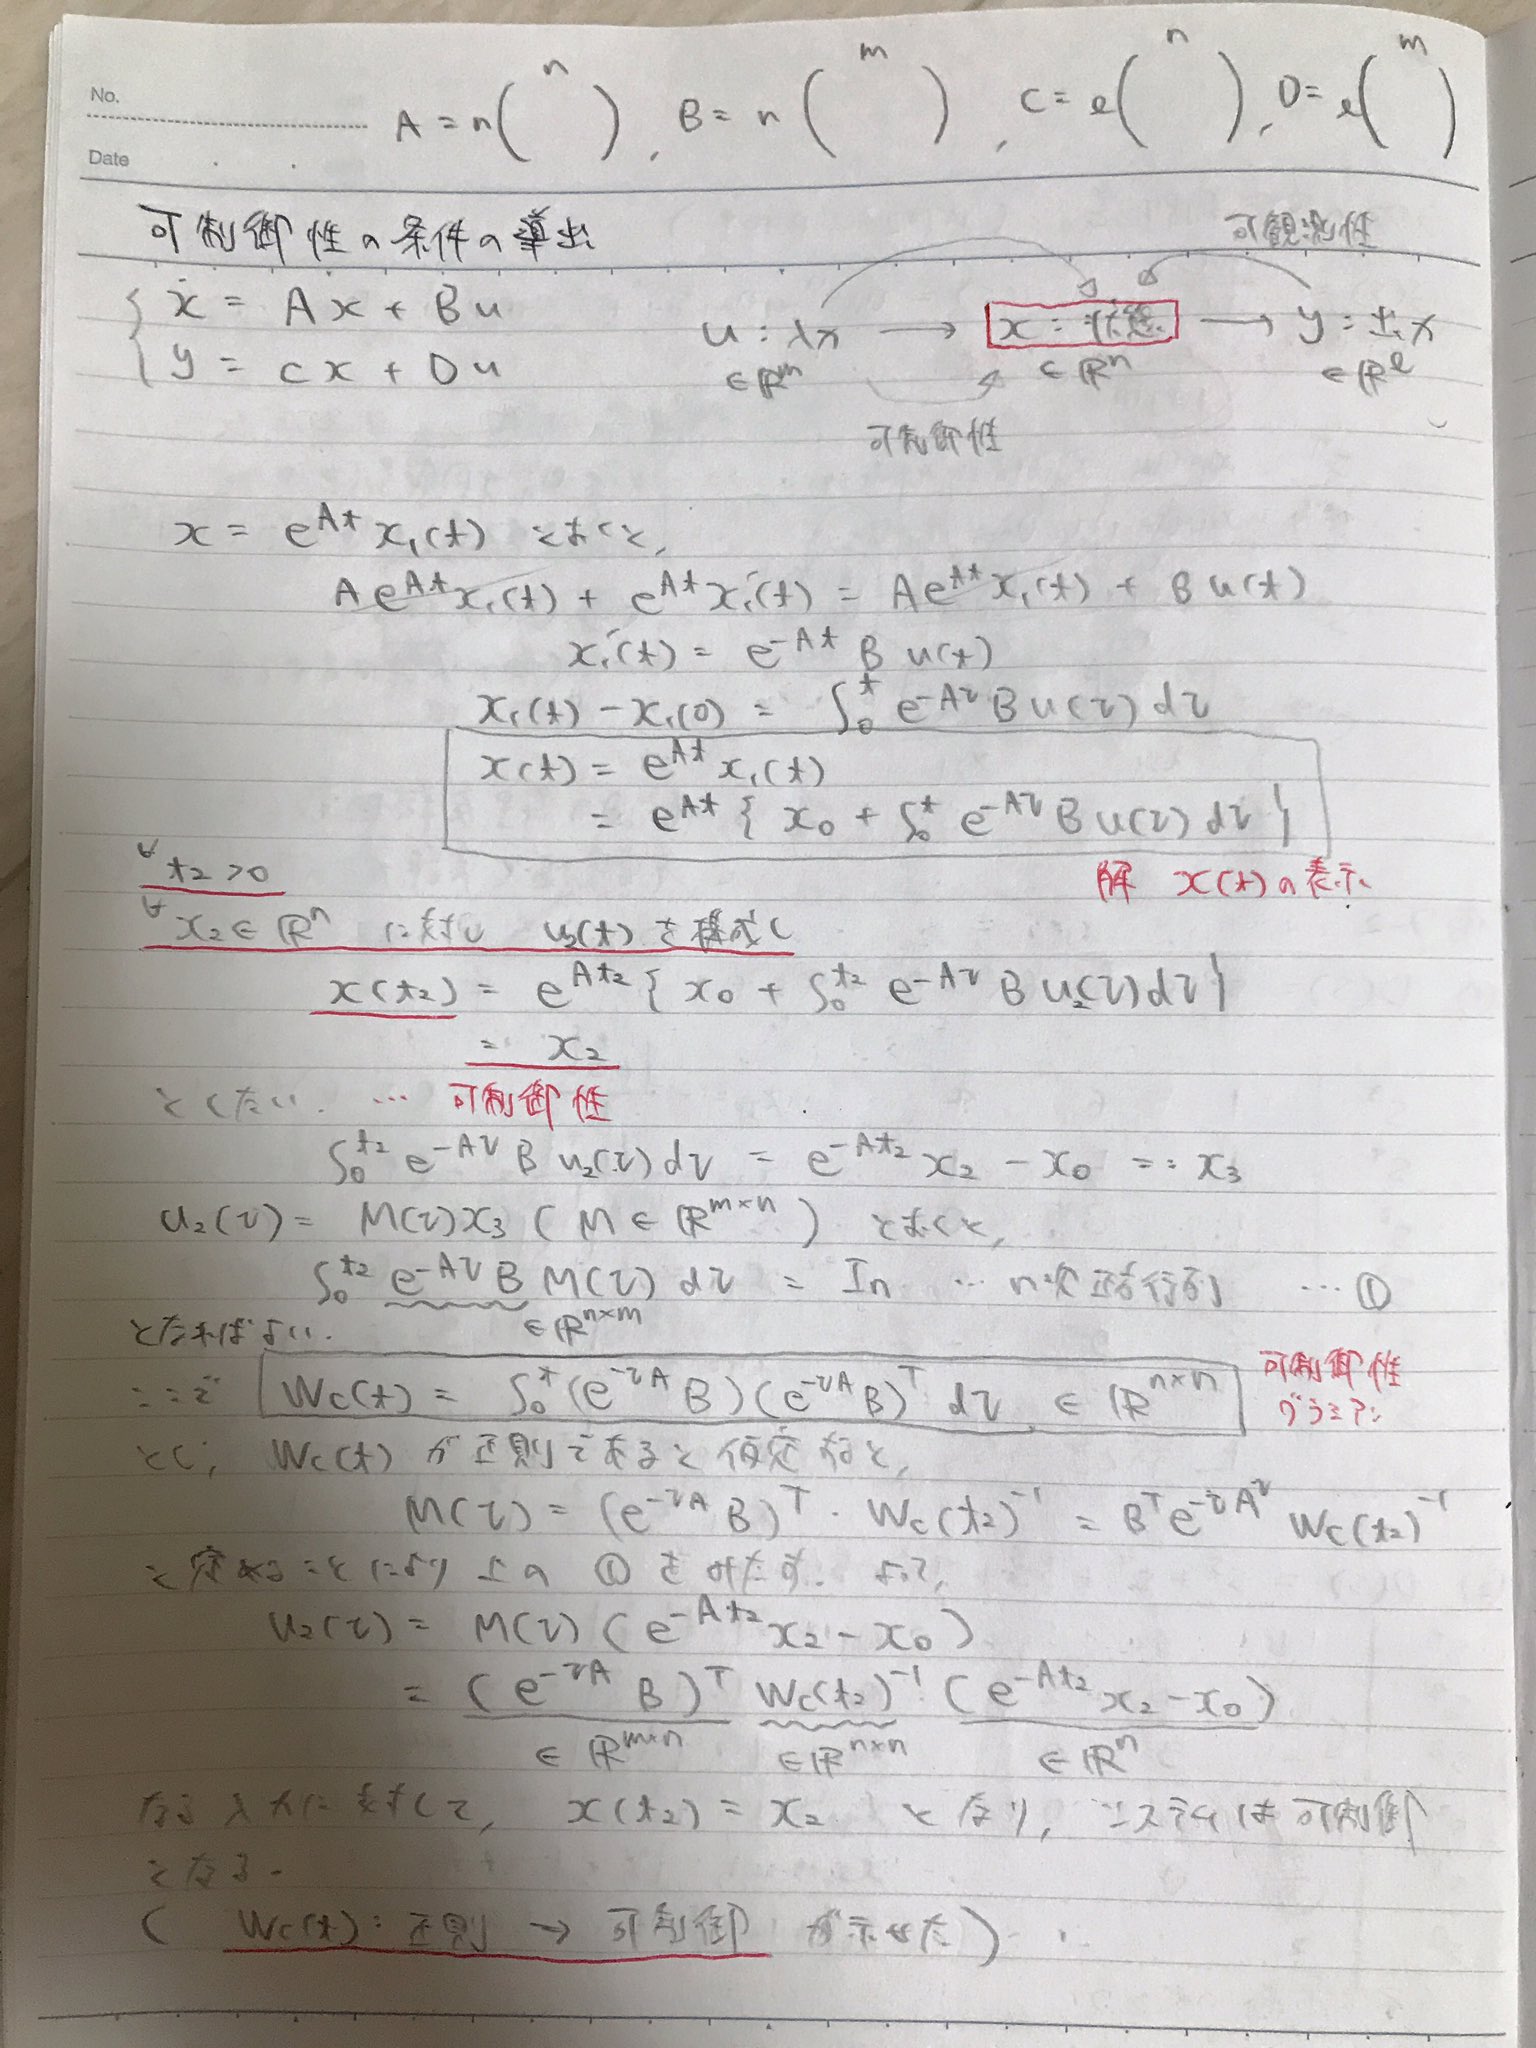 No.
Date
A = n( )n , B = n( )m , C = l( )n , D = l( )m
可制御性の条件の導出
可観測性
ẋ = Ax + Bu
y = Cx + Du
u : 入力 → x : 状態 → y : 出力
∈ ℝ^m ∈ ℝ^n ∈ ℝ^l
可制御性
x = e^{At} x₁(t) とおくと,
A e^{At} x₁(t) + e^{At} ẋ₁(t) = A e^{At} x₁(t) + B u(t)
ẋ₁(t) = e^{-At} B u(t)
x₁(t) - x₁(0) = ∫₀^t e^{-Aτ} B u(τ) dτ
x(t) = e^{At} x₁(t)
= e^{At} { x₀ + ∫₀^t e^{-Aτ} B u(τ) dτ }
∀t₂ > 0
解 x(t) の表示
∀x₂ ∈ ℝ^n に対し u₂(t) を構成し
x(t₂) = e^{At₂} { x₀ + ∫₀^{t₂} e^{-Aτ} B u₂(τ) dτ }
= x₂
としたい. … 可制御性
∫₀^{t₂} e^{-Aτ} B u₂(τ) dτ = e^{-At₂} x₂ - x₀ =: x₃
u₂(τ) = M(τ) x₃ ( M ∈ ℝ^{m×n} ) とおくと,
∫₀^{t₂} e^{-Aτ} B M(τ) dτ = In … n次正方行列 … ①
∈ ℝ^{n×m}
となればよい.
ここで Wc(t) = ∫₀^t (e^{-τA} B)(e^{-τA} B)^T dτ ∈ ℝ^{n×n}
可制御性
グラミアン
とし, Wc(t) が正則であると仮定すると,
M(τ) = (e^{-τA} B)^T · Wc(t₂)^{-1} = B^T e^{-τA^T} Wc(t₂)^{-1}
と定めることにより上の ① をみたす. よって,
u₂(τ) = M(τ) (e^{-At₂} x₂ - x₀)
= (e^{-τA} B)^T Wc(t₂)^{-1} (e^{-At₂} x₂ - x₀)
∈ ℝ^{m×n} ∈ ℝ^{n×n} ∈ ℝ^n
なる入力に対して, x(t₂) = x₂ となり, システムは可制御
となる.
( Wc(t) : 正則 → 可制御 が示せた )